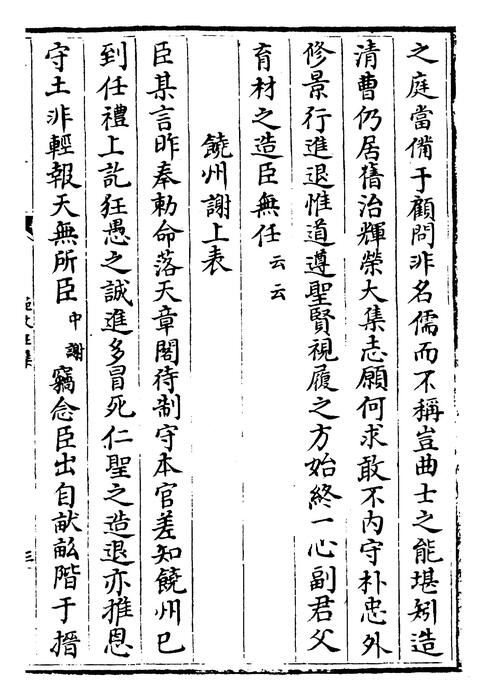 之庭當備于顧問非名儒而不稱豈曲士之能堪矧造
清曹仍居舊治輝榮大集志願何求敢不内守朴忠外
修景行進退惟道遵聖賢視履之方始終一心副君父
育材之造臣無任云云
饒州謝上表
臣某言昨奉勑命落天章閣待制守本官差知饒州已
到任禮上訖狂愚之誠進多冒死仁聖之造退亦推恩
守土非輕報天無所臣中謝竊念臣出自畎畝階于搢